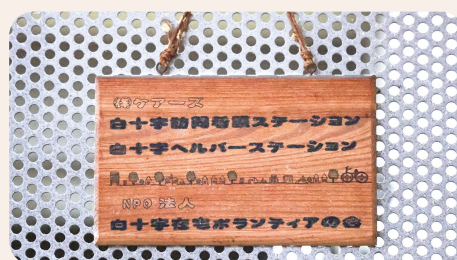 ㈱ケアーズ
白十字訪問看護ステーション
白十字ヘルパーステーション
NPO 法人
白十字在宅ボランティアの会